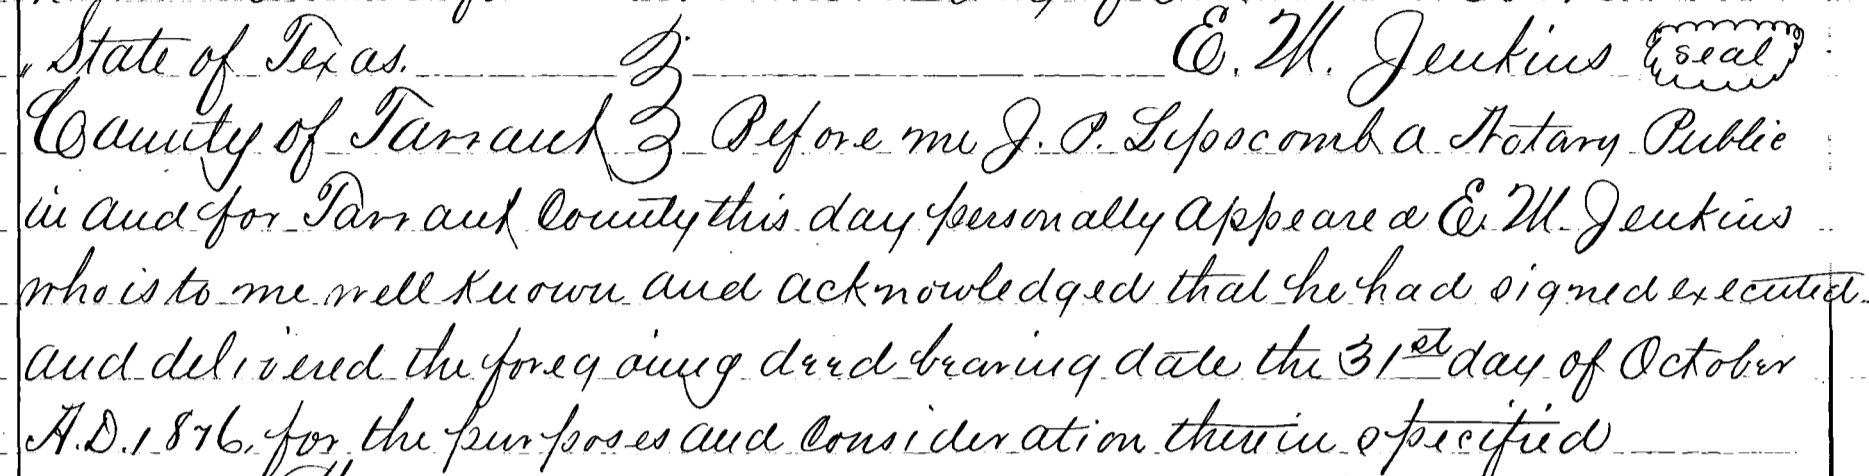 State of Texas. E. M. Jenkins seal
County of Tarrant Before me J. P. Lipscomb a Notary Public
in and for Tarrant County this day personally appeared E. M. Jenkins
who is to me well known and acknowledged that he had signed executed
and delivered the foregoing deed bearing date the 31st day of October
A.D. 1876, for the purposes and consideration therein specified